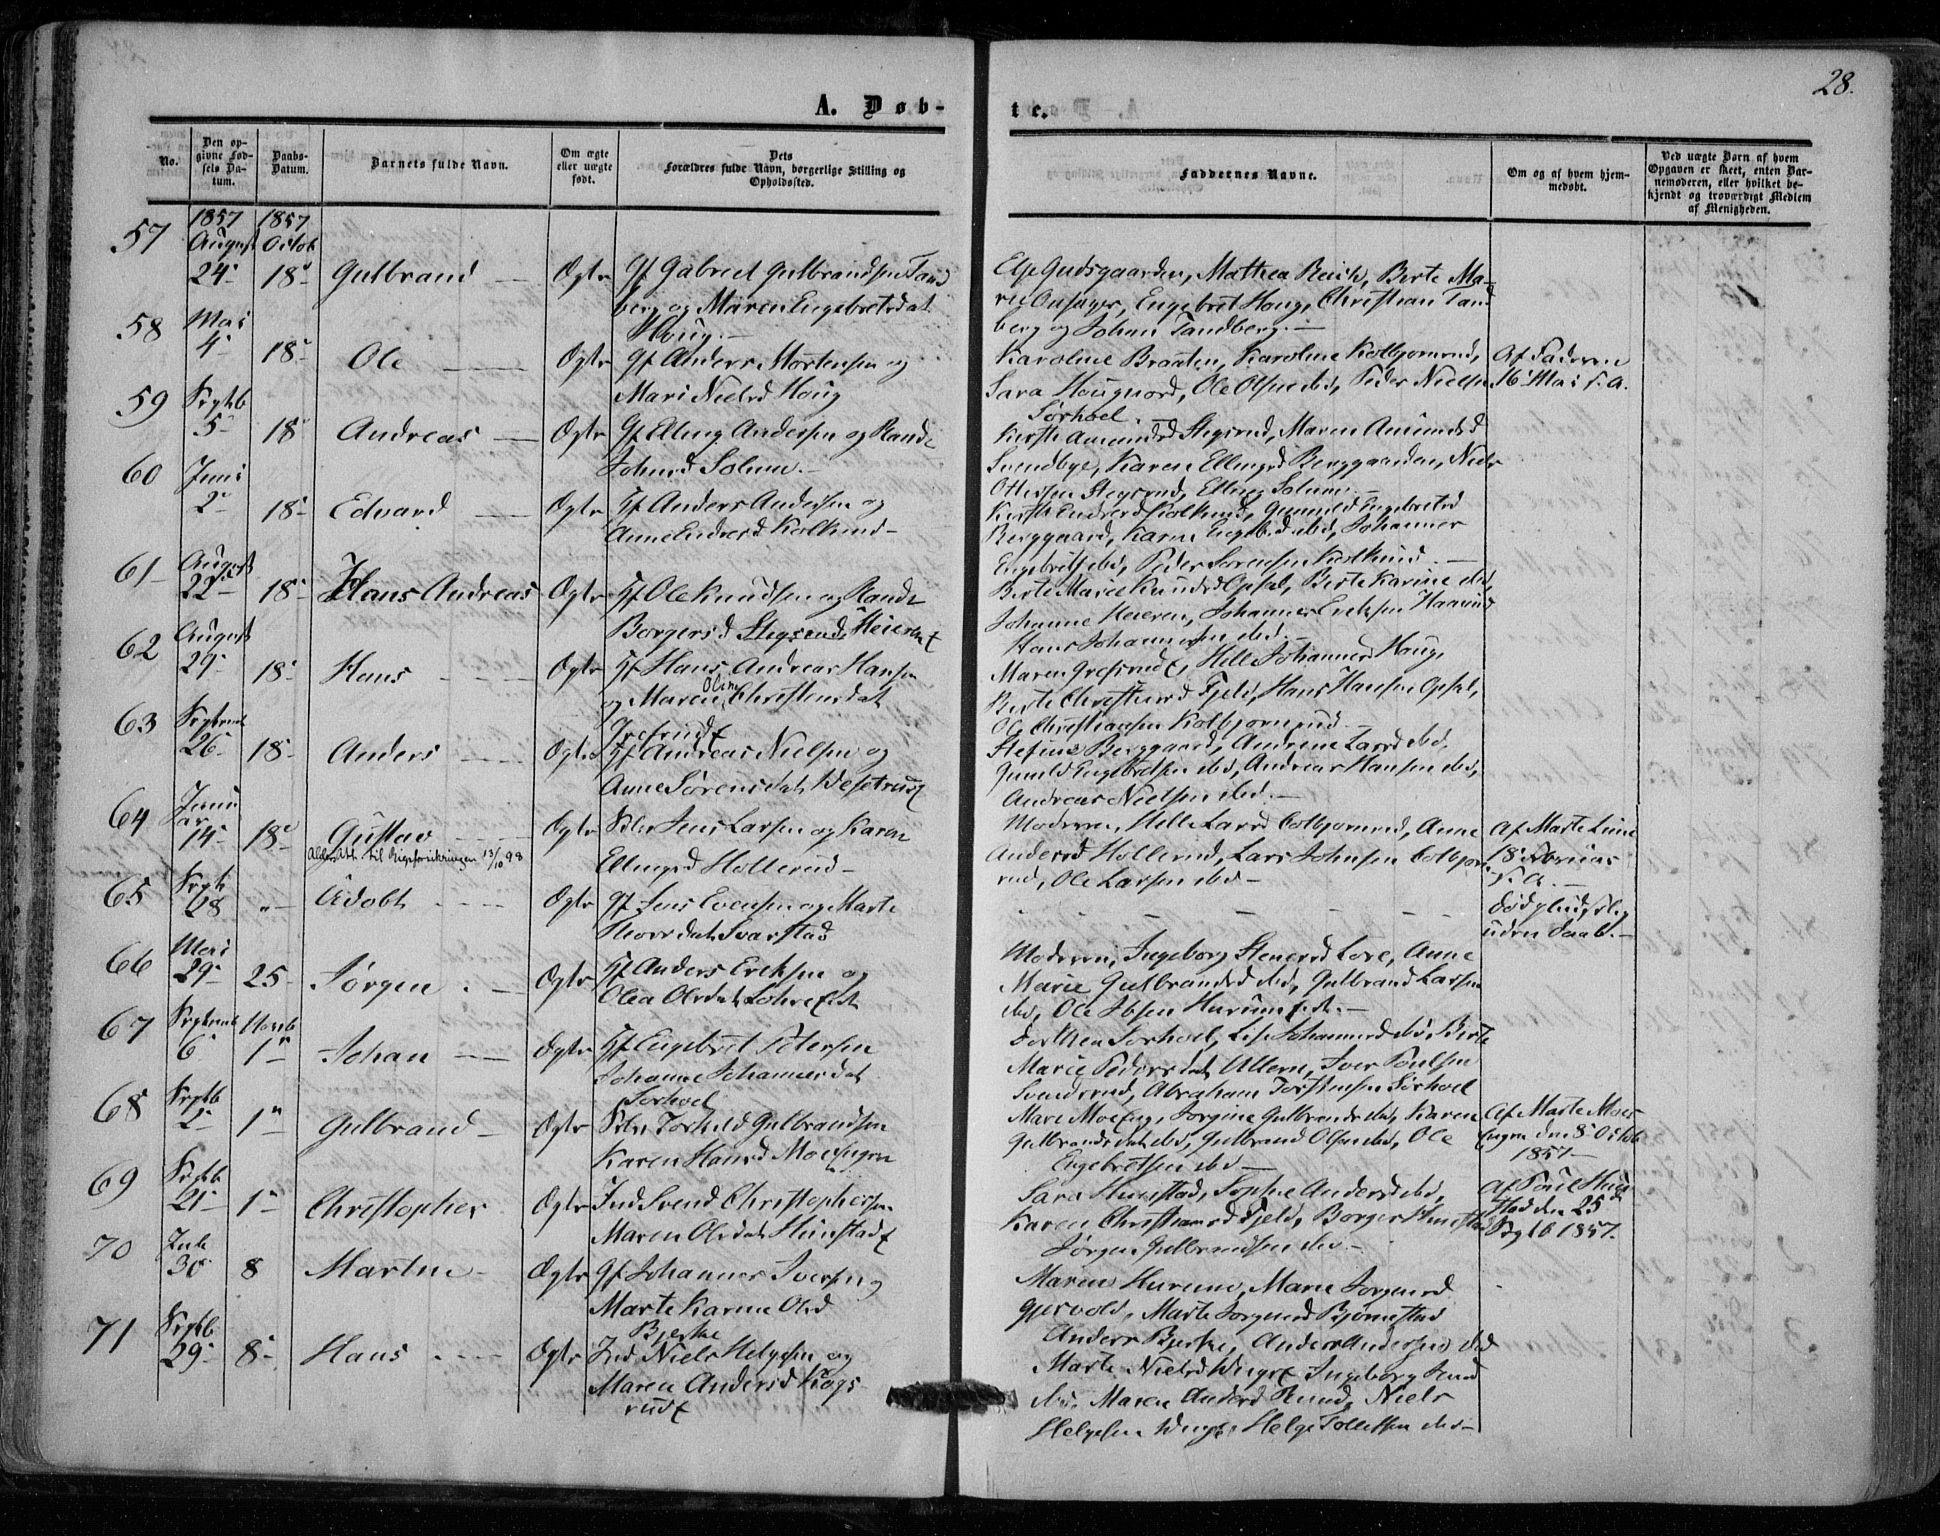 28.
A. Døb-
te.
No.
Den op-
givne Fød-
sels Da-
tum.
Daabs-
Datum.
Barnets fulde Navn.
Om ægte
eller uægte
født.
Dets
Forældres fulde Navn, borgerlige Stilling og
Opholdssted.
Faddernes Navne.
Om og af hvem hjem-
medøbt.
Ved uægte Børn af hvem
Opgaven er skeet, enten Bar-
nemoderen, eller hvilket be-
kjendt og troværdigt Medlem
af Menigheden.
57
1857
August
24
1857
Octob
18
Gulbrand
Ægte
Gf Gabriel Gulbrandsen Tand
berg og Maren Engebretsdat
Houg.
Else Gudsgaarden, Mathea Berte Ma-
rie Engebret Houg, Christian Tand
berg og Johan Tandberg.
58
Mai
4
18
Ole
Ægte
Gf Anders Mortensen og
Mari Nielsd Houg
Karoline Braaten, Karoline Kolbjørnsrud,
Sara Hougnord, Ole Olsen ibd, Peder Nielsen
Sørhoel.
Af Faderen
16 Mai s. a.
59
Septb
5
18
Andreas
Ægte
Gf Elling Andersen og Rande
Johnsd Solum.
Kirsti Amundsd Stegsrud, Maren Amundsd
Svendbye, Karen Ellingsd Berggaarden, Niels
Ottersen Stegsrud, Elling Solum.
60
Juni
2
18
Edvard
Ægte
Gf Anders Andersen og
Anne Endresd Kolkind
Kirsti Endresd Kolkind, Gunild Engebretsd
Berggaard, Karen Engebd ibd, Johannes
Engebretsen ibd, Peder Sørensen Kolkind.
61
August
22
18
Hans Andreas
Ægte
Gf Ole Knudsen og Rande
Borgersd Stegsrud Heieren
Berte Marie Knudsd Opsal, Berte Karine ibd,
Johanne Heieren, Johannes Eriksen Haarud
Hans Johannesen ibd.
62
August
29
18
Hans
Ægte
Gf Hans Andreas Hansen
og Maren Oline Christensdat
Grefsrud
Maren Grefsrud, Helle Johannesd Haug,
Berte Christensd Fjeld, Hans Hansen Opsal,
Ole Christiansen Kolbjørnsrud.
63
Septemb
26
18
Anders
Ægte
Gf Andreas Nielsen og
Anne Sørensdat
Berggaard, Andrine Larsd ibd,
Gunild Engebretsen ibd, Andreas Hansen ibd,
Andreas Nielsen ibd.
64
Januar
14
18
Gustav
Aldersatt. til Rigsforsikringen 13/10 98
Ægte
Jens Larsen og Karen
Ellingsd Hollerud
Moderen, Helle Larsd Colbjørnsrud, Anne
Andersd Hollerud, Lars Johnsen Colbjørns
rud, Ole Larsen ibd
Af Marte Lime
18 Februar
s. a.
65
Septb
28
Udøbt
Ægte
Gf Jens Evensen og Marte
Svarstad
Død
uden Daab.
66
Mai
29
25
Jørgen
Ægte
Gf Anders Eriksen og
Olea Olsdat
Moderen, Ingeborg Stenersd Lore, Anne
Marie Gulbrandsd ibd, Gulbrand Larsen
ibd, Ole Ibsen
67
Septemb
6
Novb
1
Johan
Ægte
Gf Engebret Petersen
Johanne Johannesdat
Sørhoel
Dorthea Sørhoel, Lise Johannesd ibd, Berte
Marie Pedersdat Ullern, Iver Poulsen
Svendsrud, Abraham Torstensen Sørhoel
68
Septb
2
1
Gulbrand
Ægte
Torkild Gulbrandsen
Karen Hansd Moeengen
Mari Moeeng, Jorgine Gulbrandsd ibd, Karen
Gulbrandsdat ibd, Gulbrand Olsen ibd, Ole
Engebretsen ibd
Af Marte Moe
engen den 8 Octob
1857
69
Septb
21
1
Christopher
Ægte
Ind Svend Christophersen
Maren Olsdat Hunstad
Sara Hunstad, Sophie Andersd ibd,
Karen Christiansd Fjeld, Borger Hunstad
Jørgen Gulbrandsen ibd
Af Poul Hun
stad den 25
Septb 1857.
70
Juli
30
8
Martin
Ægte
Gf Johannes Iversen og
Marte Karine Olsd
Bjerke
Maren Hurum, Marie Jorgensd
Gjervold, Marte Jorgensd Bjørnstad
Anders Bjerke, Anders Andersen ibd
71
Septb
29
8
Hans
Ægte
Ind Niels Helgesen og
Maren Andersd Kogs
rud
Marte Nielsd Ingeborg
ibd, Maren Andersd Niels
Helgesen Helge Tollefsen ibd